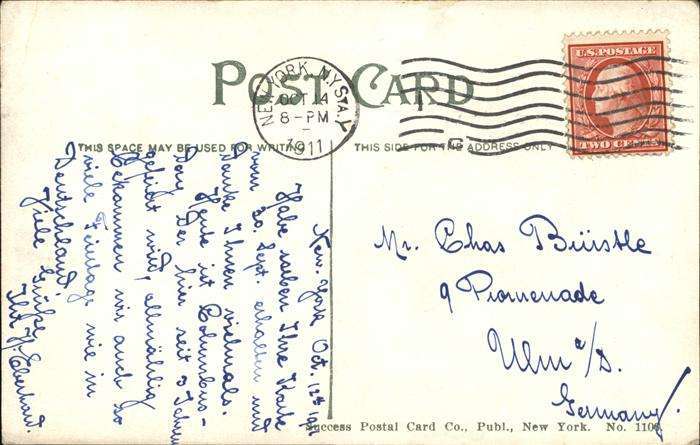 POST CARD
NEW YORK, N.Y. STA. Y
OCT 14
8-PM
1911
U.S. POSTAGE
TWO CENTS
THIS SPACE MAY BE USED FOR WRITING
THIS SIDE FOR THE ADDRESS ONLY
New-York Oct. 12th 1911
Habe soeben Ihre Karte
vom 30. Sept. erhalten und
danke Ihnen vielmals.
Heute ist Columbus-
Day. Der hier seit 3 Jahren
gefeiert wird, allmählig
bekommen wir auch so
viele Feiertage wie in
Deutschland.
Viele Grüße,
Ihr H. Eberhard.
Mr. Chas Brüstle
9 Promenade
Ulm a/D.
Germany.
Success Postal Card Co., Publ., New York. No. 1106